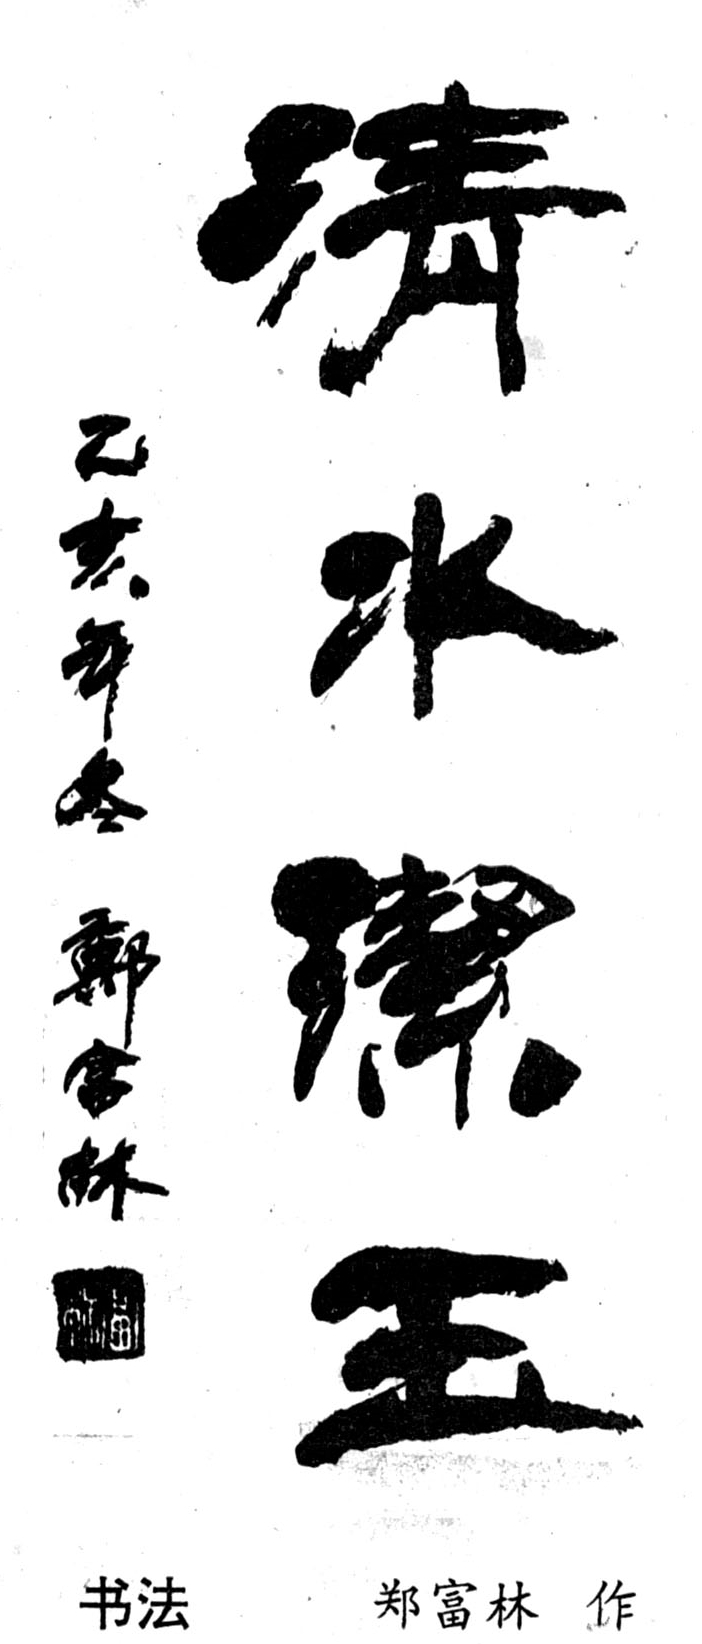 清水潔玉
乙亥年冬 鄭富林
书法 郑富林 作